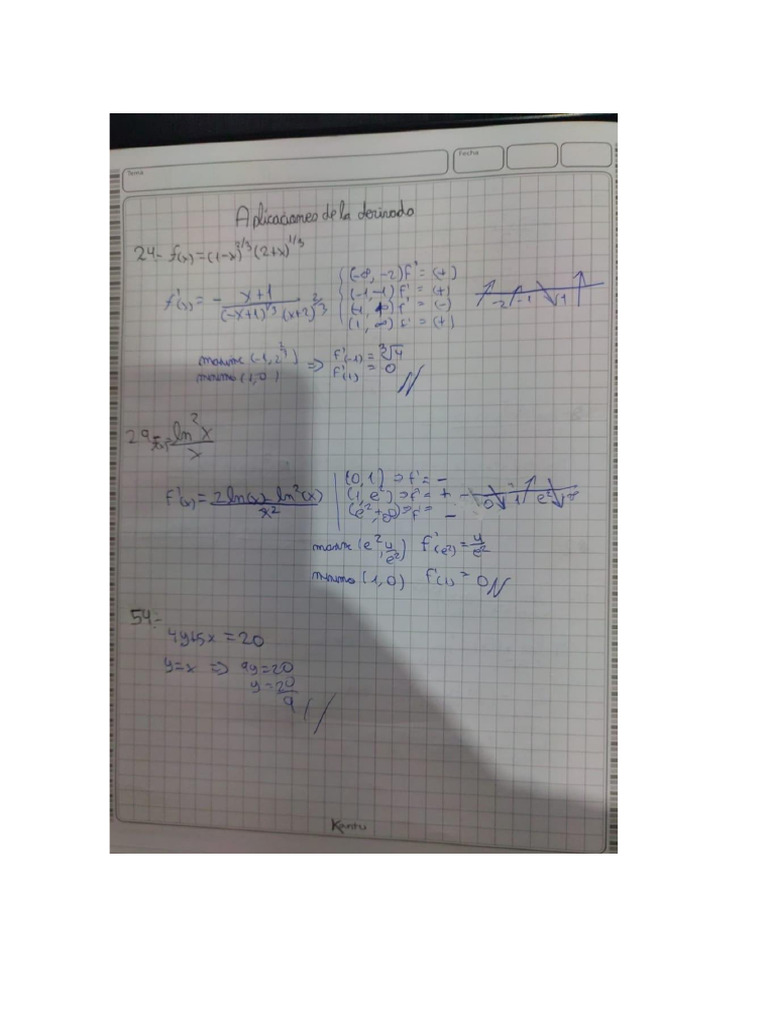 Tema
Fecha
Aplicaciones de la derivada
24.- f(x) = (1-x)^2/3 (2+x)^1/3
f'(x) = - x+1 / (-x+1)^1/3 (x+2)^2/3
(-∞, -2) f' = (+)
(-1, -1) f' = (+)
(-1, 1) f' = (-)
(1, ∞) f' = (+)
-2 -1 1
f'(-1) = ∛4
minimo (1, 0) f'(1) = 0
29.- ln²x / x
f'(x) = 2 ln(x) - ln²(x) / x²
(0, 1) => f' = -
(1, e²) => f' = +
(e², +∞) => f' = -
0 1 e²
(e², 4/e²) f'(e²) = 4/e²
minimo (1, 0) f'(1) = 0
54.-
4y+5x = 20
y=x => 9y=20
y=20/9
Kantu